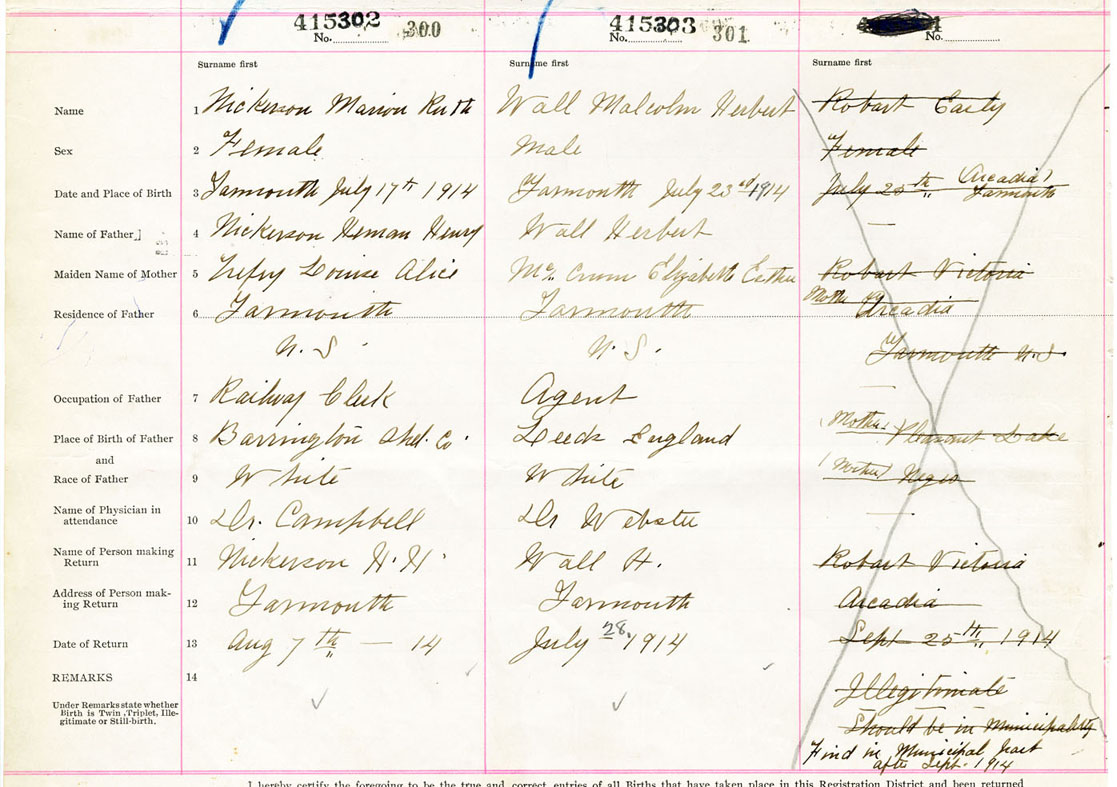 415302 300 415303 301
No. No. No.
Surname first Surname first Surname first
Name 1 Nickerson Marion Ruth Wall Malcolm Herbert Robart Carly
Sex 2 Female Male Female
Date and Place of Birth 3 Yarmouth July 17th 1914 Yarmouth July 23rd 1914 July 25th (Arcadia) Yarmouth
Name of Father 4 Nickerson Heman Henry Wall Herbert —
Maiden Name of Mother 5 Trefry Louise Alice Elizabeth Esther Robart Victoria
Residence of Father 6 Yarmouth Yarmouth Mother Arcadia
N. S. N. S. Yarmouth N. S.
Occupation of Father 7 Railway Clerk Agent —
Place of Birth of Father 8 Barrington Shel. Co. Leeds England (Mother) Pleasant Lake
and
Race of Father 9 White White (Mother) Negro
Name of Physician in
attendance 10 Dr. Campbell Dr Webster —
Name of Person making
Return 11 Nickerson H. H. Wall H. Robart Victoria
Address of Person mak-
ing Return 12 Yarmouth Yarmouth Arcadia
Date of Return 13 Aug 7th — 14 July 28, 1914 Sept 25th, 1914
REMARKS 14 Illegitimate
Under Remarks state whether
Birth is Twin, Triplet, Ille-
gitimate or Still-birth.
Should be in Municipality
Find in Municipal
after Sept. 1914
I hereby certify the foregoing to be the true and correct entries of all Births that have taken place in this Registration District and been returned